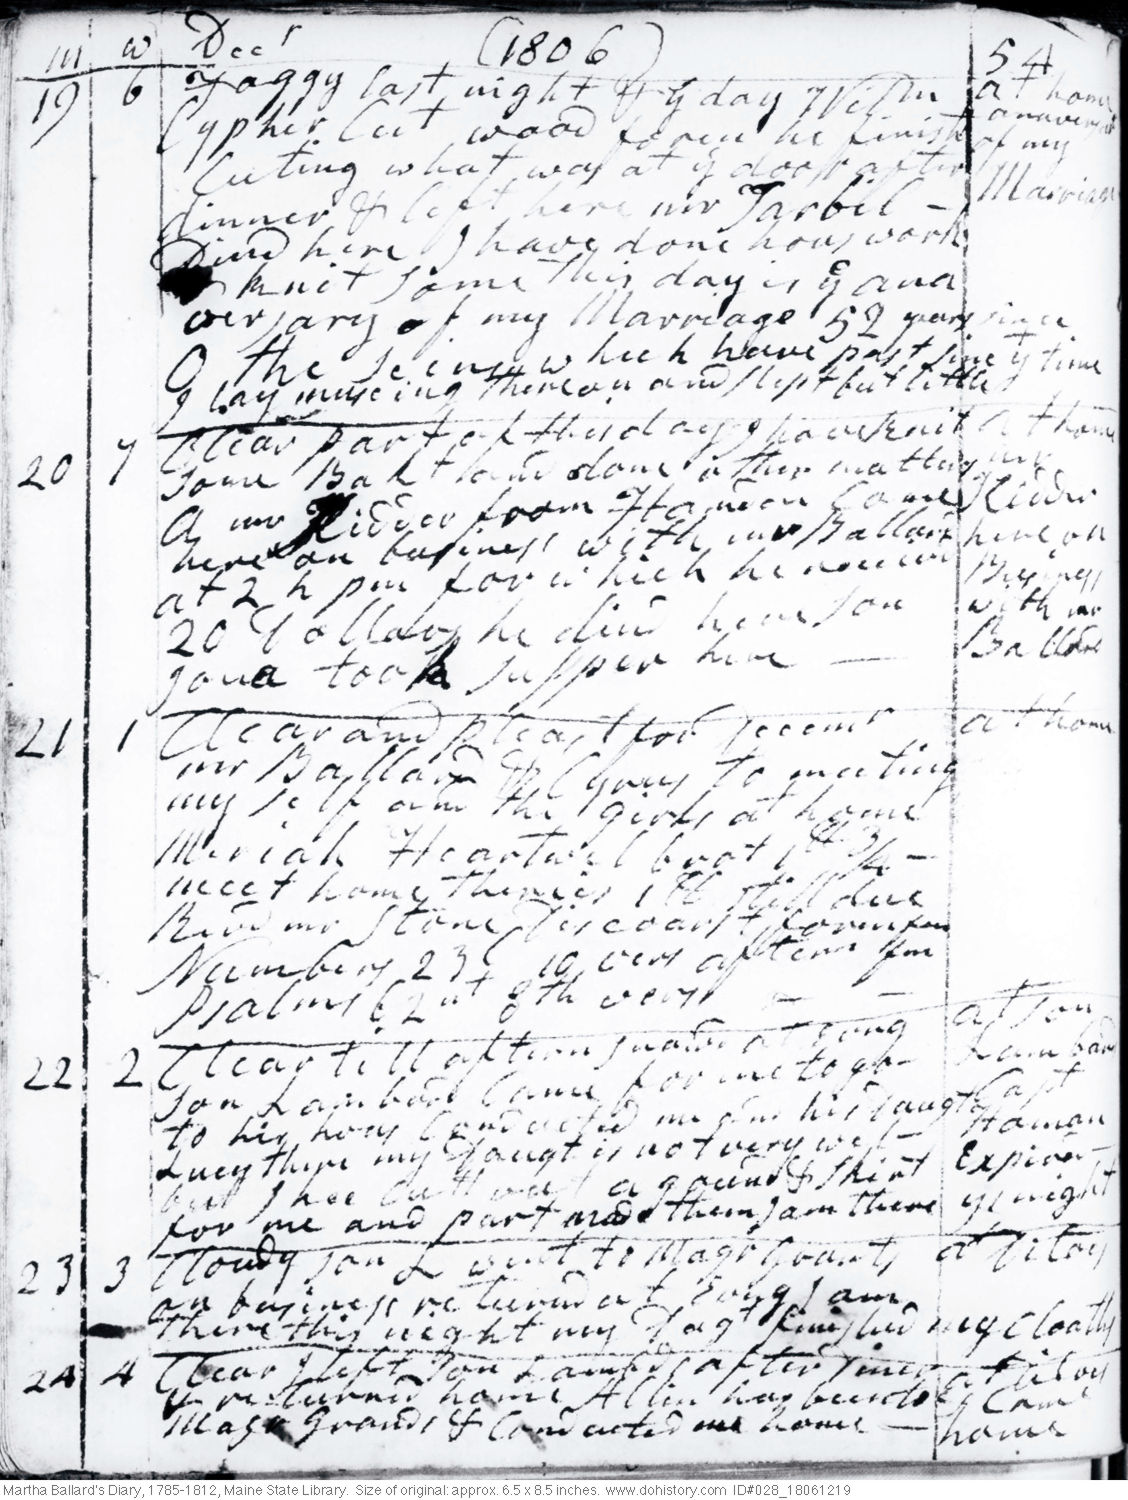 m w Decr (1806) 54
19 6 Foggy last night & ye day Wm at home
Cypher Cut wood here he finisht anaversary
Cuting what was at ye door after of my
dinner & left here mr Tarbel – Marriage
Dind here I have done hous work
& knit some this day is ye ana
versary of my Marriage 52 years since
O the scins which have past sinc ye time
I lay museing thereon and slept but little
20 7 Clear part of the day I have knit at home
some Bakt and done other matters mr
A mr Kidder from came Kidder
here on business with mr Ballard here on
at 2 h pm for which he receivd Business
20 Dollars he dind here son with mr
Jona took supper here — Ballard
21 1 Clear and pleast for Decemr at home
mr Ballard & Cyrus to meeting
my self and the girls at home
Meriah Heartwel brot 1 lb 3/4 –
meet home there is 1 lb still due
Revd mr Stone Discoarst forenn from
Numbers 23 C 10 vers aftern fm
Psalms 62nd 8th vers – –
22 2 Clear till aftern snowd at Evng at son
son Lambard Came for me to go – Lambards
to his hous Conducted me and his daught Capt
Lucy there my Daugt is not very wel – Haman
but shee cutt out a gound & skirt Expired
for me and part made them I am there ys night
23 3 Cloudy son L went to Majr Grants at ditoes
on business returnd at Evng I am
there this night my Dagt finished my cloaths
24 4 Clear I left son Lambds after diner at ditoes
& returned home Allin has been to & Came
Majr Grants & Conducted me home — home
Martha Ballard's Diary, 1785-1812, Maine State Library. Size of original: approx. 6.5 x 8.5 inches. www.dohistory.com ID#028_18061219